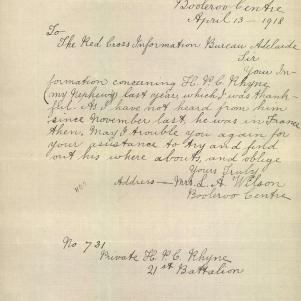 Booleroo Centre
April 13 - 1918
To
The Red Cross Information Bureau Adelaide
Sir
Your In-
formation concerning H. P. C. Rhyne
(my Nephew) last year which I was thank-
ful. As I have not heard from him
since November last, he was in France
then. May I trouble you again for
your assistance to try and find
out his where abouts, and oblige
Yours Truly
Address - Mrs. L. A. Wilson
Booleroo Centre
No 731
Private H. P. C. Rhyne
21st Battalion